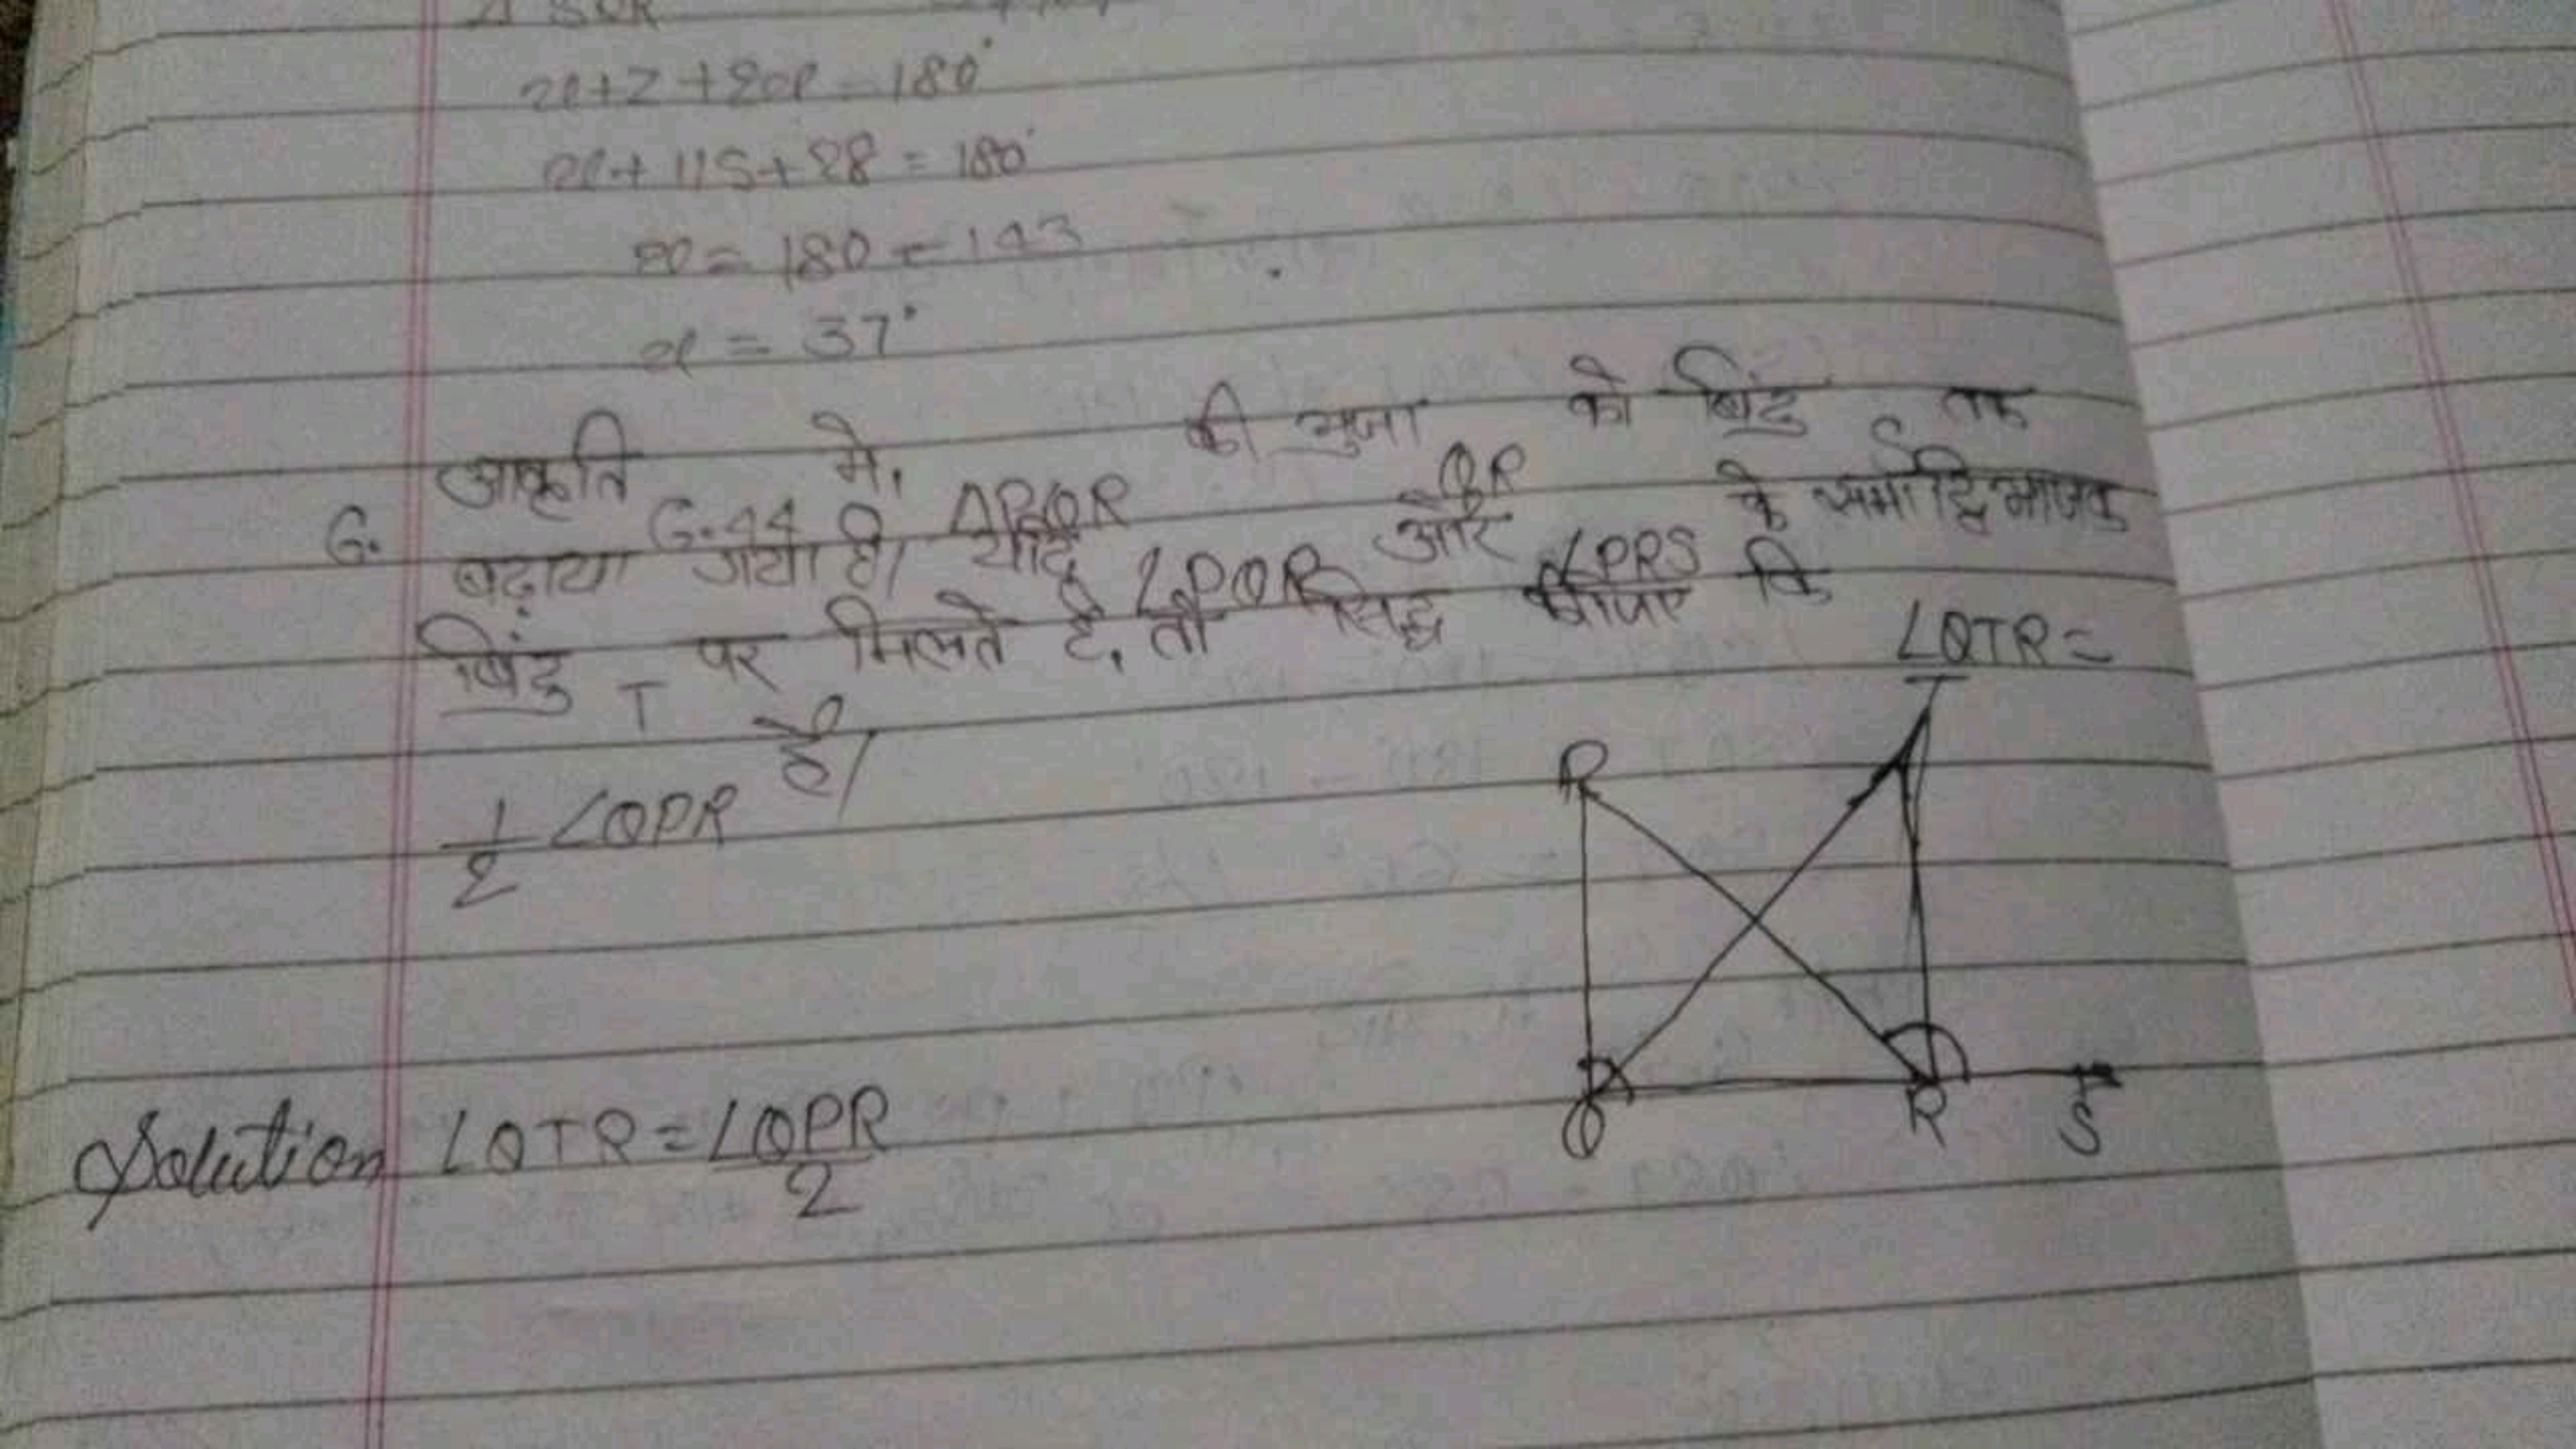 x+z+28 = 180°
x+115+28 = 180°
x = 180 - 143
x = 37°
6. आकृति 6.44 में, ΔPQR की भुजा QR को बिंदु S तक
बढ़ाया गया है। यदि ∠PQR और ∠PRS के समद्विभाजक
बिंदु T पर मिलते है, तो सिद्ध कीजिए कि ∠QTR =
1/2 ∠QPR है।
T
P
Q R S
Solution ∠QTR = ∠QPR/2